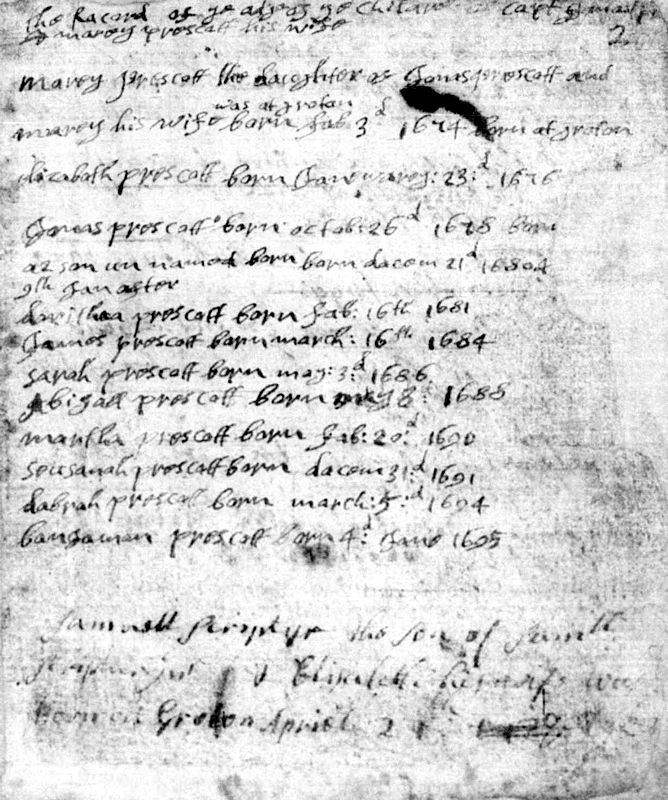 the Racord of ye ages ye Childre of capt
marey prescott his wife
2
marey prescott the daeghter of Jonas prescott and
was at groton
marey his wife born fab 3d 1674 born at groton
elizabath prescott born Janewarey: 23:d 1676
Jonas prescott born octob: 26d 1678 born
az son un named born born dacem 21d 16804
att Lanaster
dorithea prescott born fab: 16th 1681
James prescott born march: 16th 1684
Sarah prescott born may: 3:d 1686
Abigael prescott born may 8: 1688
martha prescott born fab: 20:d 1690
sousanah prescott born dacem 31:d 1691
dabrah prescott born march: 5:d 1694
banJamin prescott born 4:d Jane 1695
Samuell scriptur the son of Samll
scriptur Elizabeth his wife was
born in Groton Apriel 2